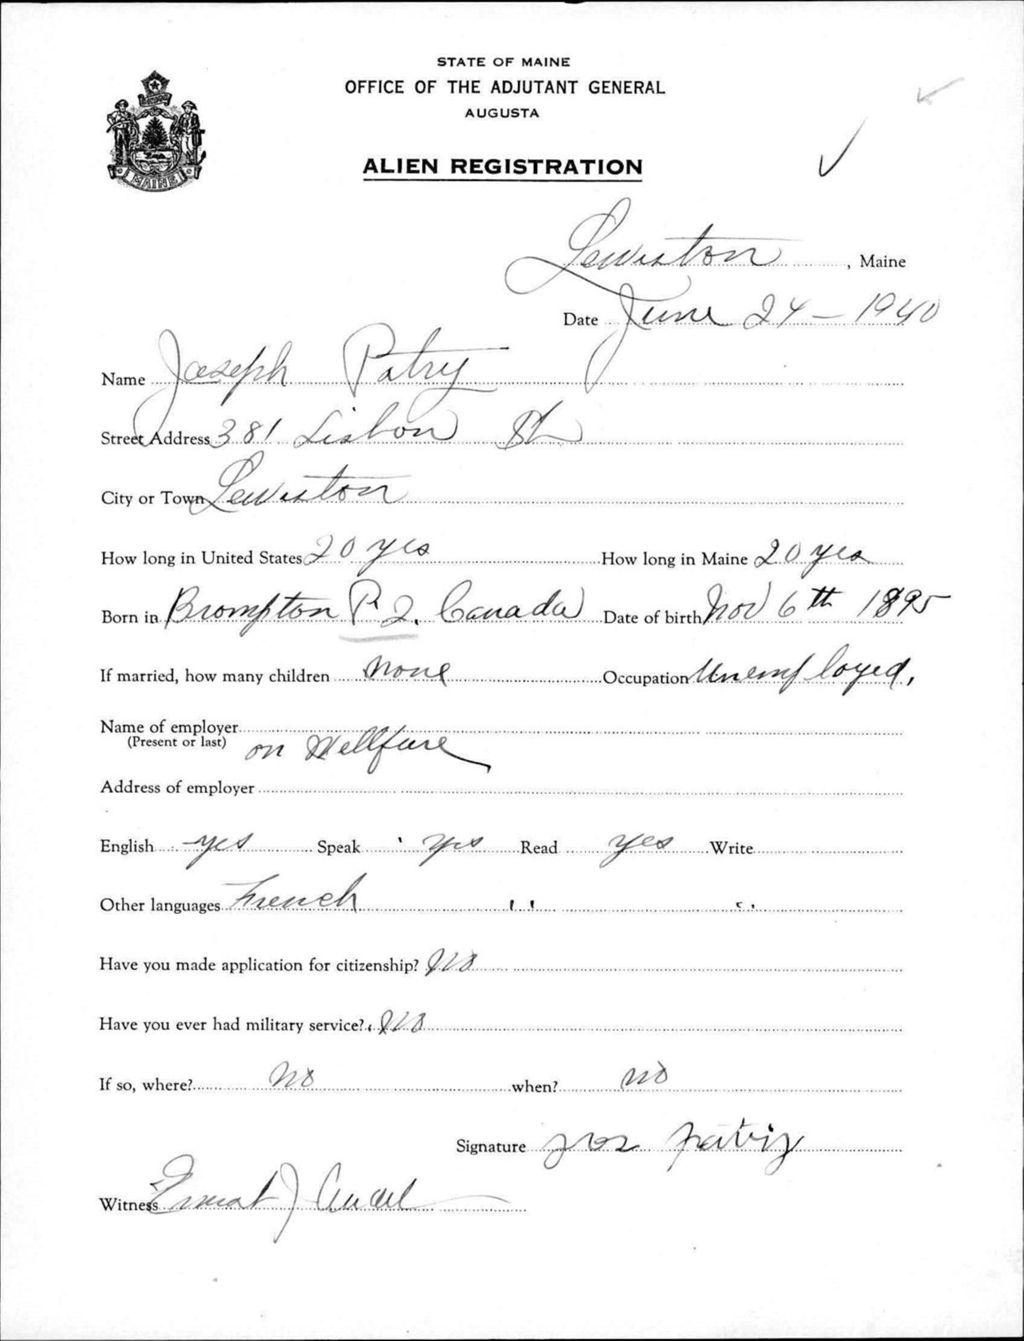 STATE OF MAINE
OFFICE OF THE ADJUTANT GENERAL
AUGUSTA
ALIEN REGISTRATION
MAINE
Lewiston, Maine
Date June 24 - 1940
Name Joseph Patry
Street Address 381 Lisbon St
City or Town Lewiston
How long in United States 20 yes How long in Maine 20 yes
Born in Brompton P. Q. Canada Date of birth Nov 6th 1895
If married, how many children None Occupation Unemployed,
Name of employer
(Present or last) on Wellfare
Address of employer
English yes Speak yes Read yes Write
Other languages French " "
Have you made application for citizenship? No
Have you ever had military service? No
If so, where? No when? no
Signature Jos patriy
Witness Ernest J